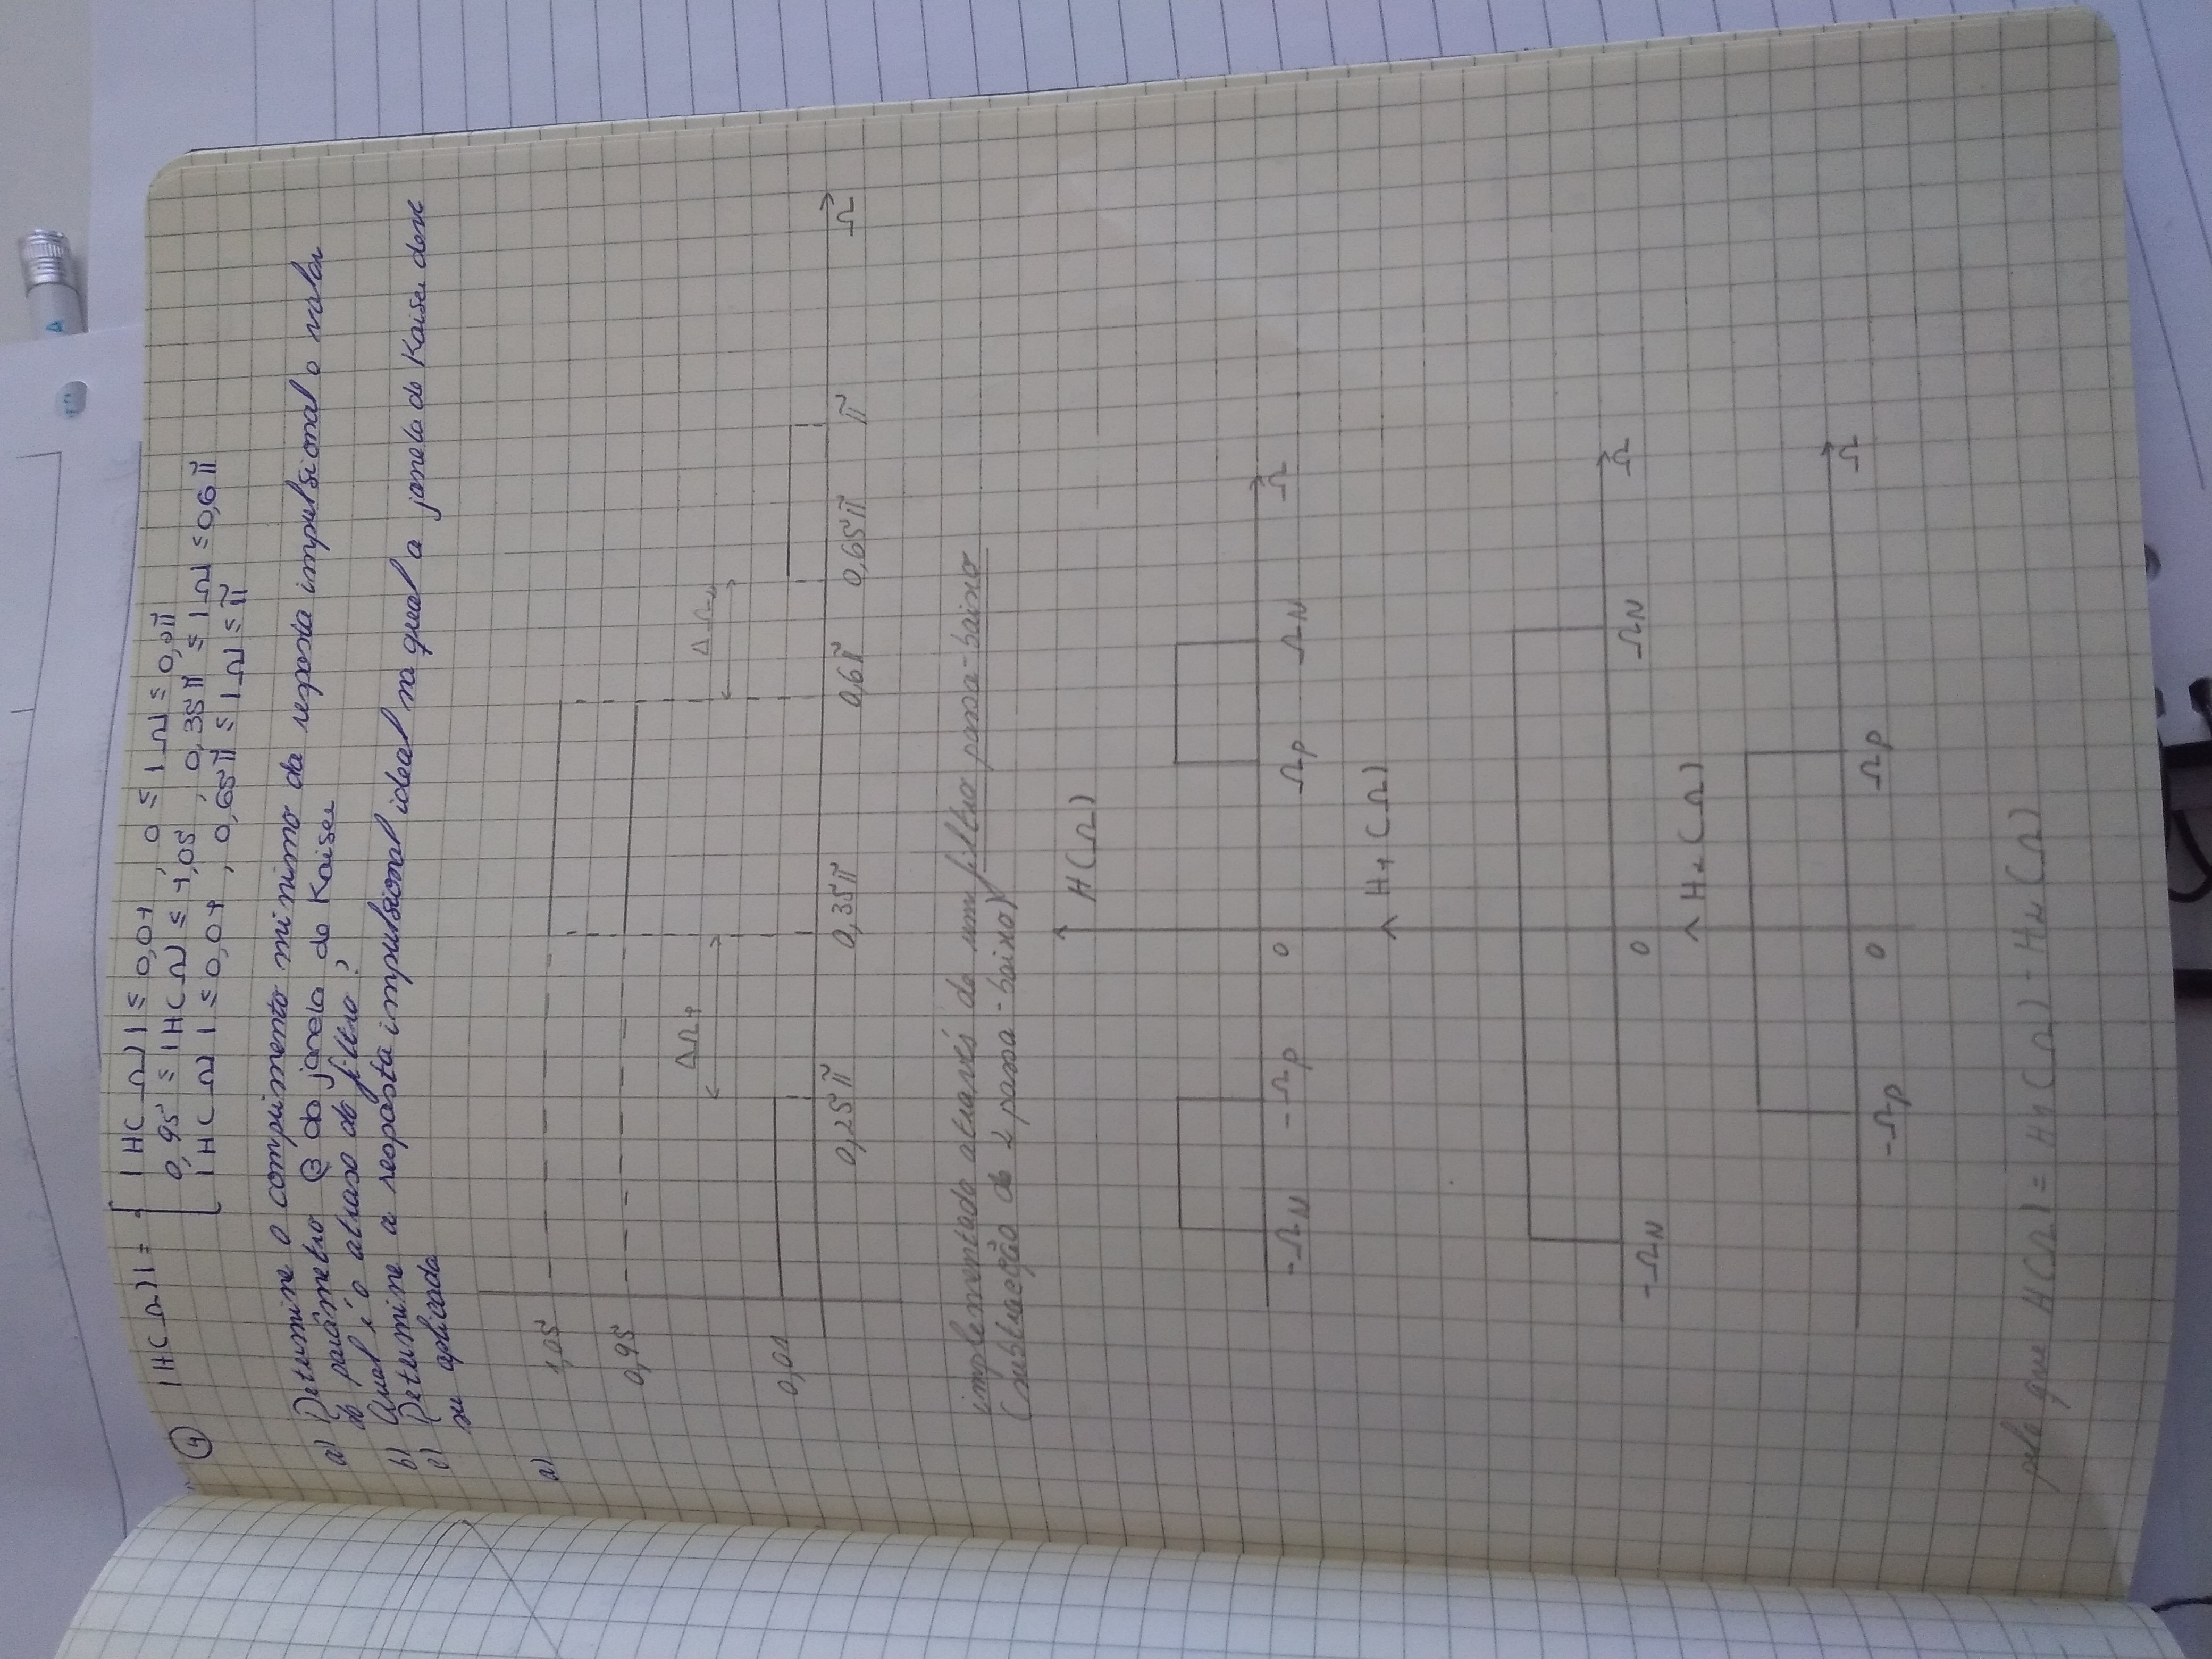 ④ |H(Ω)| = { |H(Ω)| ≤ 0,01 , 0 ≤ |Ω| ≤ 0,2π
0,95 ≤ |H(Ω)| ≤ 1,05 , 0,35π ≤ |Ω| ≤ 0,6π
|H(Ω)| ≤ 0,01 , 0,65π ≤ |Ω| ≤ π
a) Determine o comprimento minimo da resposta impulsional e valor
do parâmetro β da janela de Kaiser
b) Qual é o atraso do filtro?
c) Determine a resposta impulsional ideal na qual a janela de Kaiser deve
ser aplicada
a)
1,05
0,95
ΔΩ1
ΔΩ2
0,01
0,25π 0,35π 0,6π 0,65π π Ω
implementado através de um filtro passa-baixo
(subtracção de 2 passa-baixo)
H(Ω)
-ΩN -Ωp 0 Ωp ΩN Ω
H1(Ω)
-ΩN 0 ΩN Ω
H2(Ω)
-Ωp 0 Ωp Ω
pelo que H(Ω) = H1(Ω) - H2(Ω)